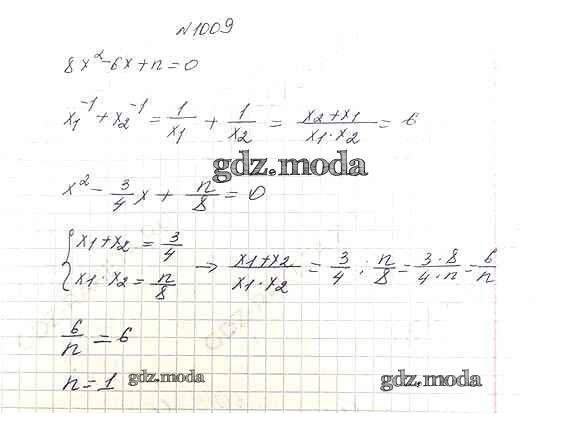 №1009
8x² - 6x + n = 0
x₁⁻¹ + x₂⁻¹ = 1/x₁ + 1/x₂ = (x₂ + x₁)/(x₁ · x₂) = 6
gdz.moda
x² - 3/4 x + n/8 = 0
{ x₁ + x₂ = 3/4
x₁ · x₂ = n/8 → (x₁ + x₂)/(x₁ · x₂) = 3/4 : n/8 = (3 · 8)/(4 · n) = 6/n
6/n = 6
n = 1 gdz.moda
gdz.moda